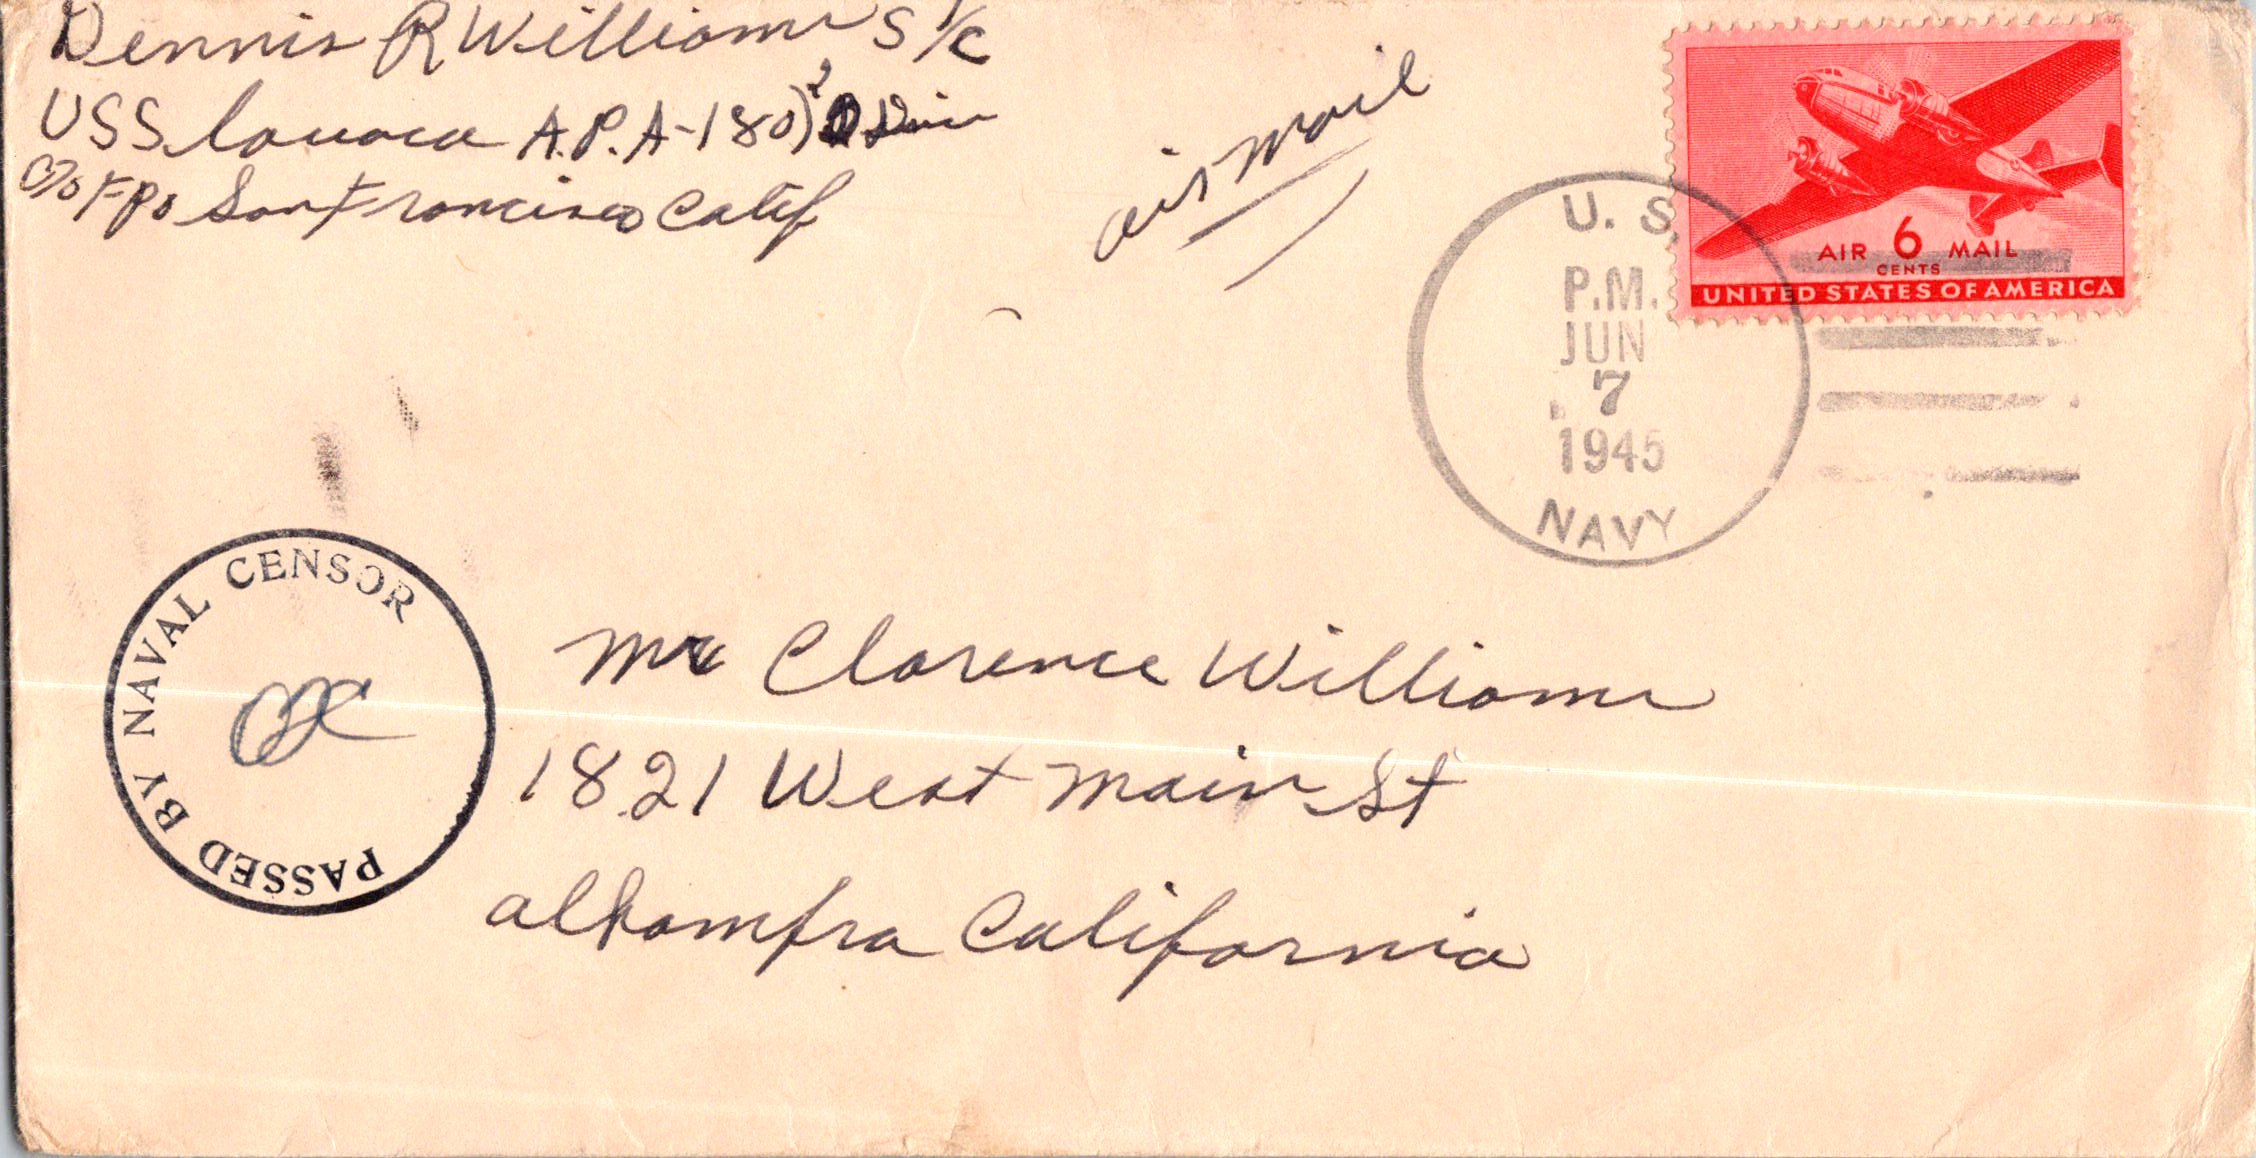 Dennis R Williams S 1/c
USS Lavaca A.P.A-180) 2 Divin
c/o FPO San Francisco Calif
Air Mail
AIR 6 MAIL
CENTS
UNITED STATES OF AMERICA
U. S.
P.M.
JUN
7
1945
NAVY
PASSED BY NAVAL CENSOR
Mr Clarence Williams
1821 West Main St
Alhambra California